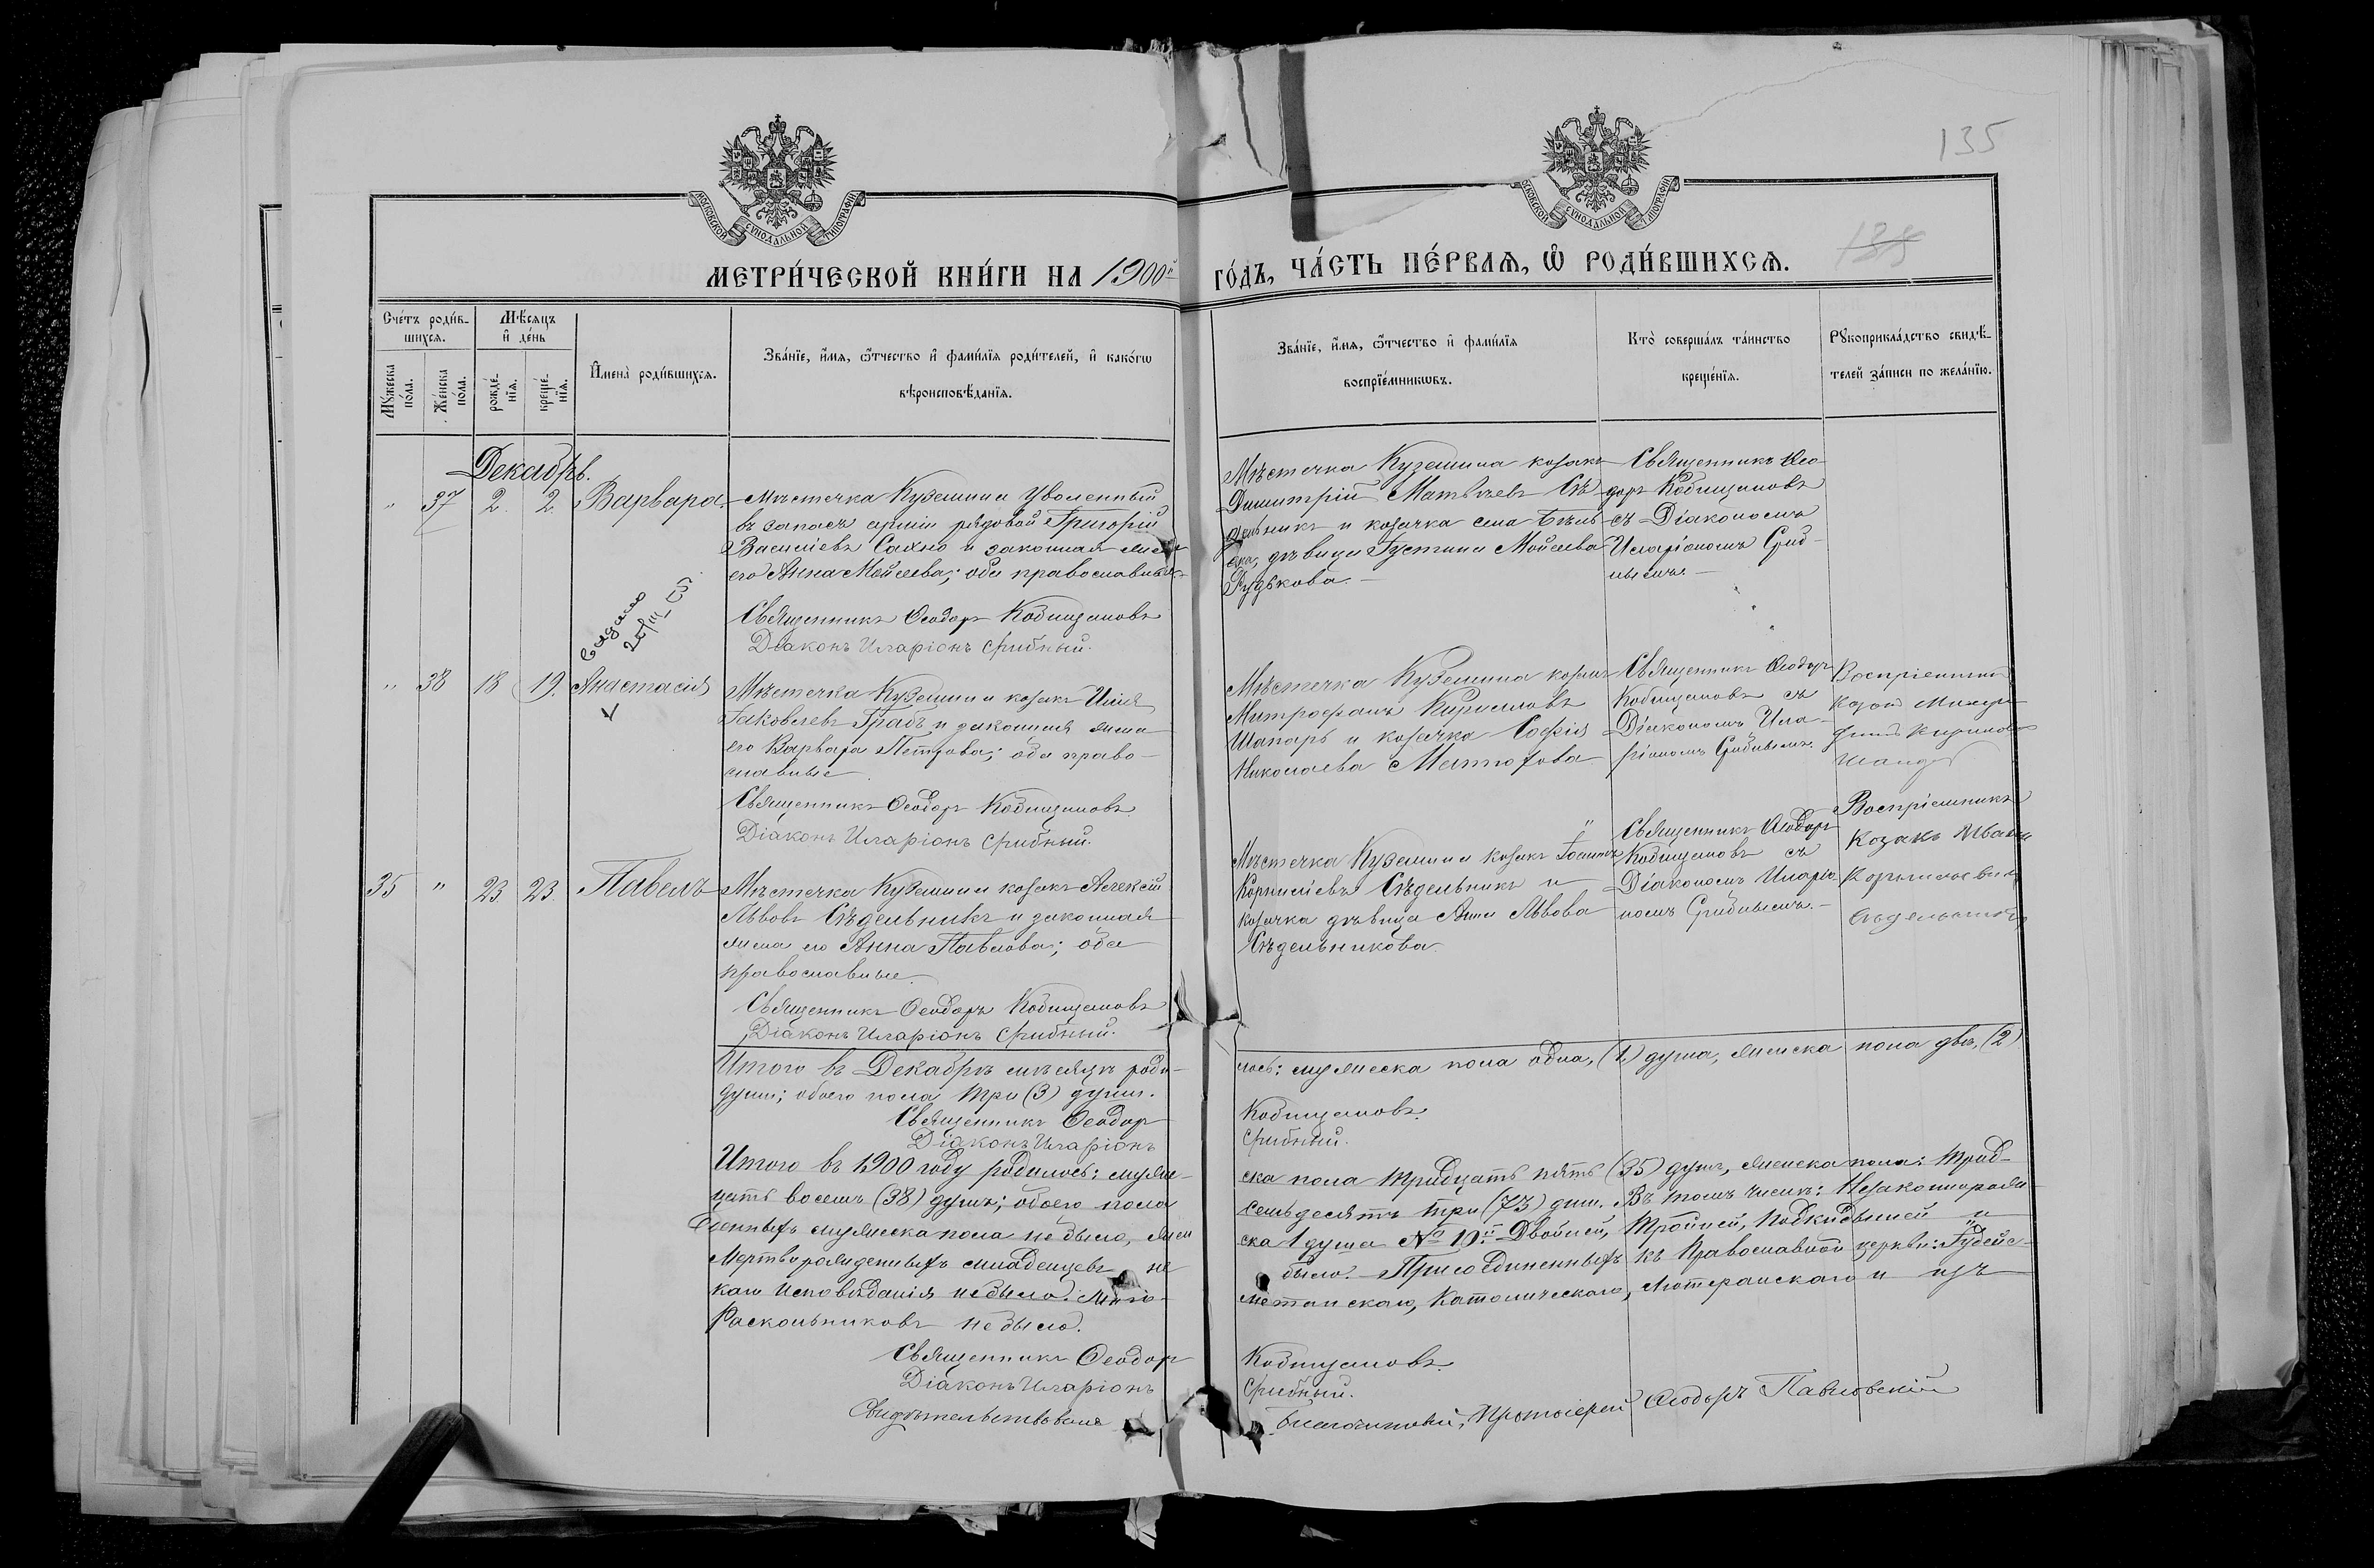 135
135
МОСКОВСКОЙ СѴНОДАЛЬНОЙ ТИПОГРАФІИ
МОСКОВСКОЙ СѴНОДАЛЬНОЙ ТИПОГРАФІИ
МЕТРИ́ЧЕСКОЙ КНИ́ГИ НА 1900й
ГО́ДЪ, ЧА́СТЬ ПЕ́РВАЯ, Ѽ РОДИ́ВШИХСЯ.
Сче́тъ роди́в-
шихся.
Мѣ́сяцъ
и҆ де́нь
Мꙋ́жеска
по́ла.
Же́нска
по́ла.
рожде́-
нїя.
креще́-
нїя.
И҆мена̀ роди́вшихся.
Зва́нїе, и҆́мя, ѻ҆́тчество и҆ фами́лїя роди́телей, и҆ како́гѡ
вѣроисповѣ́данїя.
Зва́нїе, и҆́мя, ѻ҆́тчество и҆ фами́лїя
воспрїе́мникѡвъ.
Кто̀ соверша́лъ та́инство
креще́нїя.
Рꙋкоприкла́дство свидѣ́-
телей за́писи по жела́нїю.
Декабрь.
" 37 2. 2. Варвара.
Мѣстечка Куземина уволенный
въ запасъ арміи рядовой Григорій
Василіевъ Сахно и законная жена
его Анна Мойсеева; оба православные
Священникъ Ѳеодоръ Кобищановъ
Діаконъ Иларіонъ Срибный.
Мѣстечка Куземина козакъ
Димитрій Матвѣевъ Сѣ-
дельникъ и козачка села Бѣль-
ска, дѣвица Густина Мойсеева
Рудькова.
Священникъ Ѳео-
доръ Кобищановъ
съ Діакономъ
Иларіономъ Сриб-
нымъ.
" 38 18 19. Анастасія
Мѣстечка Куземина козакъ Илія
Іаковлевъ Грабъ и законная жена
его Варвара Петрова; оба право-
славные
Священникъ Ѳеодоръ Кобищановъ.
Діаконъ Иларіонъ Срибный.
Мѣстечка Куземина козакъ
Митрофанъ Кирилловъ
Шапарь и козачка Софія
Николаева
Священникъ Ѳеодоръ
Кобищановъ съ
Діакономъ Ила-
ріономъ Срибнымъ.
Воспріемникъ
Козакъ
35 " 23. 23. Павелъ
Мѣстечка Куземина козакъ Алексій
Львовъ Сѣдельникъ и законная
жена его Анна Павлова; оба
православные.
Священникъ Ѳеодоръ Кобищановъ
Діаконъ Иларіонъ Срибный.
Мѣстечка Куземина козакъ Іоаннъ
Корниліевъ Сѣдельникъ и
козачка дѣвица Анна Львова
Сѣдельникова
Священникъ Ѳеодоръ
Кобищановъ съ
Діакономъ Иларіо-
номъ Срибнымъ.
Воспріемникъ
Козакъ Иванъ
Итого въ Декабрѣ мѣсяцѣ роди-
лось: мужеска пола одна, (1) душа, женска пола двѣ, (2)
души; обоего пола три (3) души.
Священникъ Ѳеодоръ
Кобищановъ.
Діаконъ Иларіонъ
Срибный.
Итого въ 1900 году родилось: муже-
ска пола тридцать пять (35) душъ, женска пола: трид-
цать восемь (38) душъ; обоего пола
семьдесятъ три (73) душ. Въ томъ числѣ: Незаконнорож-
денныхъ мужеска пола не было, жен
ска 1 душа № 19й. Двойней, тройней, подкидышей и
Мертворожденныхъ младенцевъ не
было. Присоединенныхъ къ Православной церкви: Іудейс-
каго исповѣданія не было. Маго-
метанскаго, Католическаго, Лютеранскаго и изъ
Раскольниковъ не было.
Священникъ Ѳеодоръ
Кобищановъ.
Діаконъ Иларіонъ
Срибный.
Свидѣтельствовалъ
Благочинный, Протоіерей Ѳеодоръ Павловскій